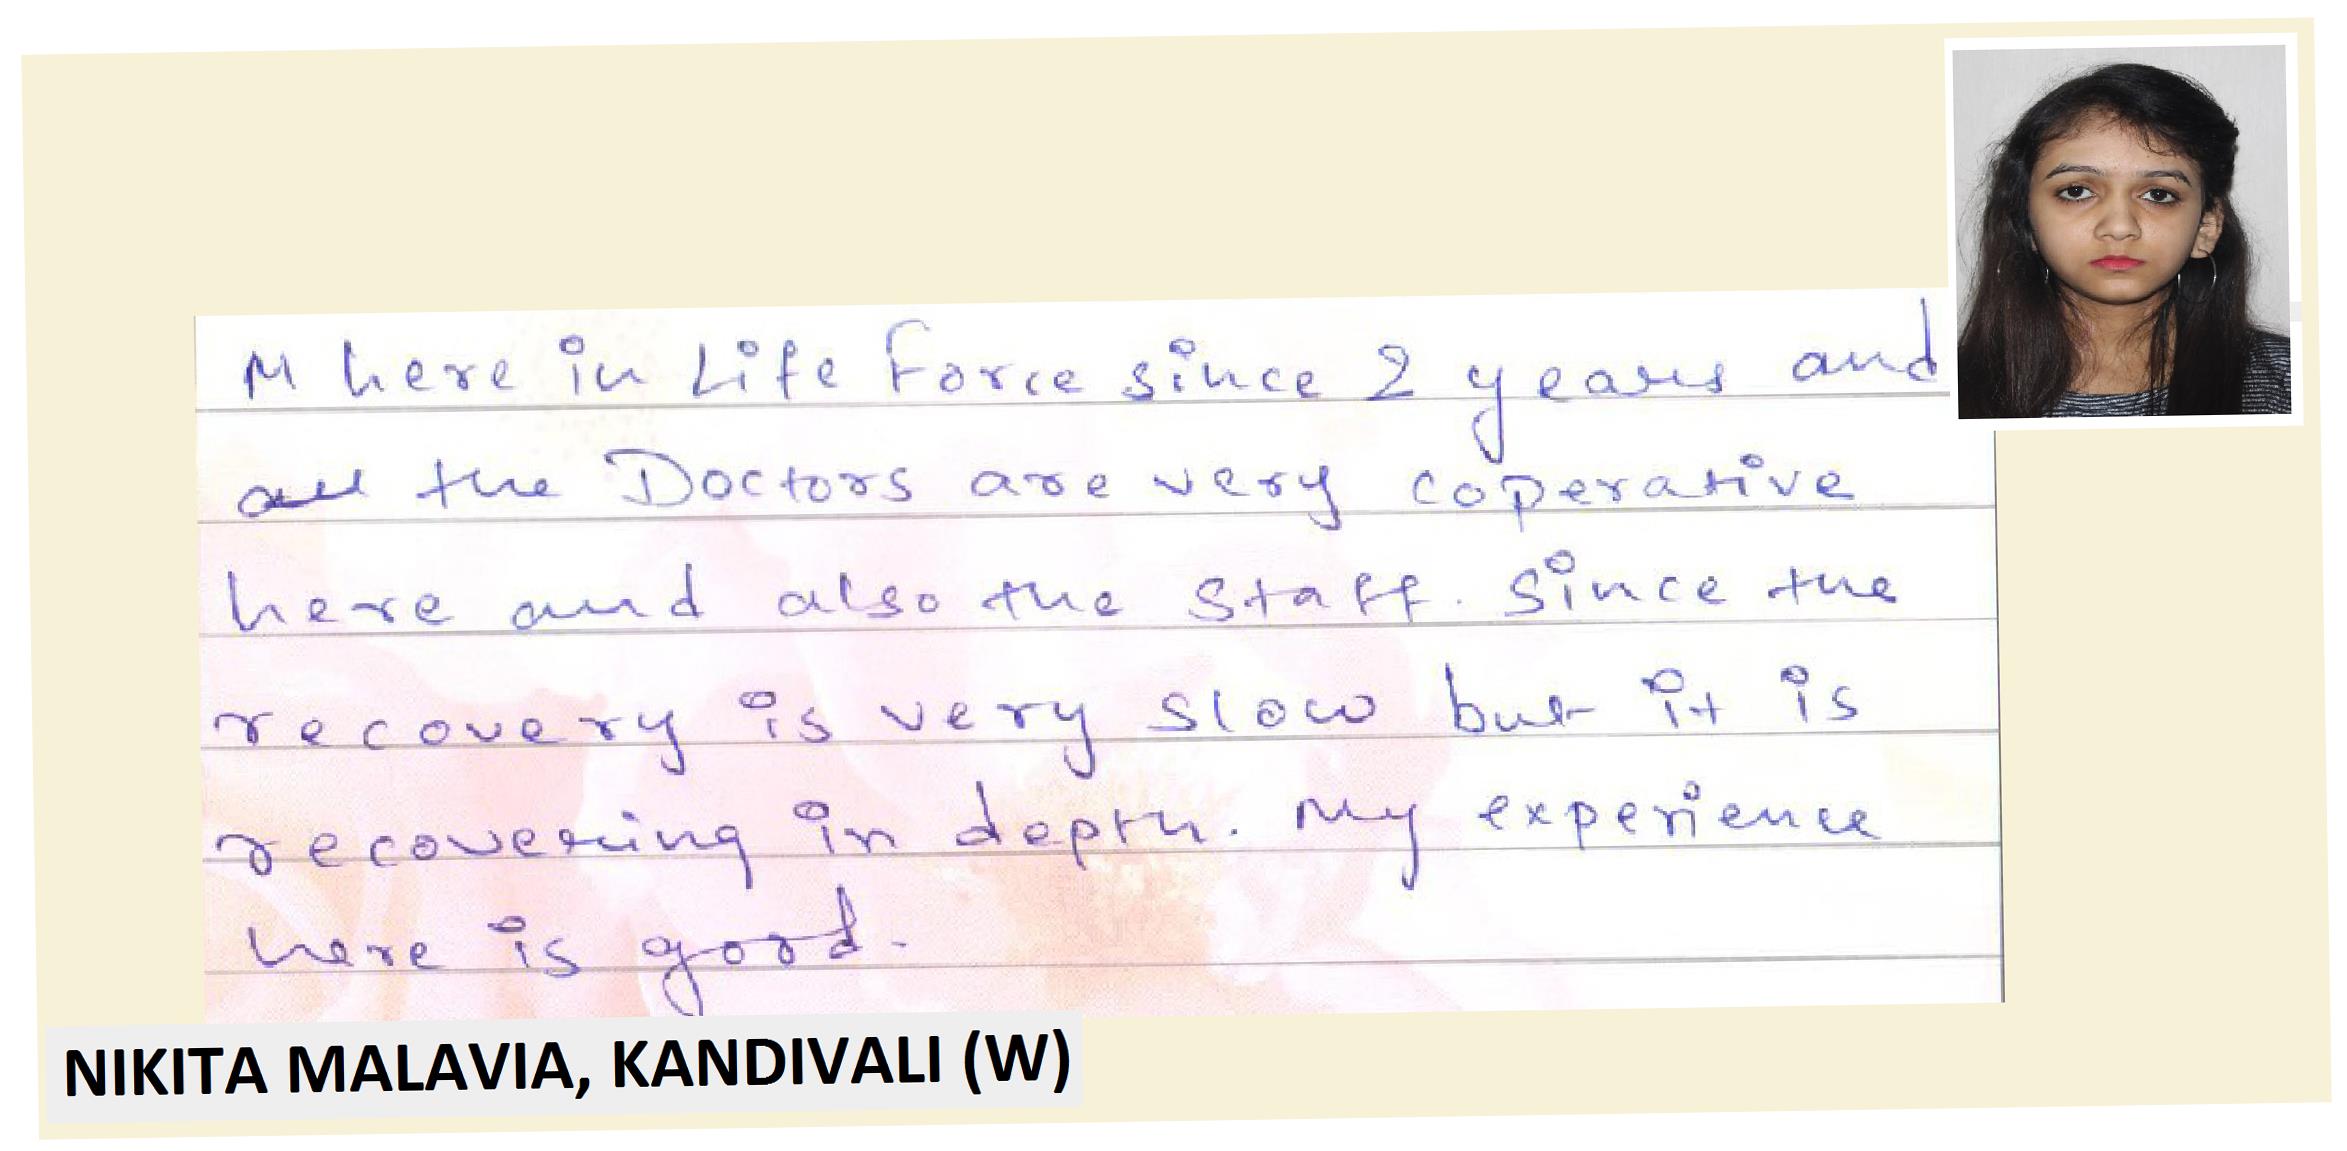 M here in Life Force since 2 years and
all the Doctors are very coperative
here and also the staff. Since the
recovery is very slow but it is
recovering in depth. My experience
here is good.
NIKITA MALAVIA, KANDIVALI (W)